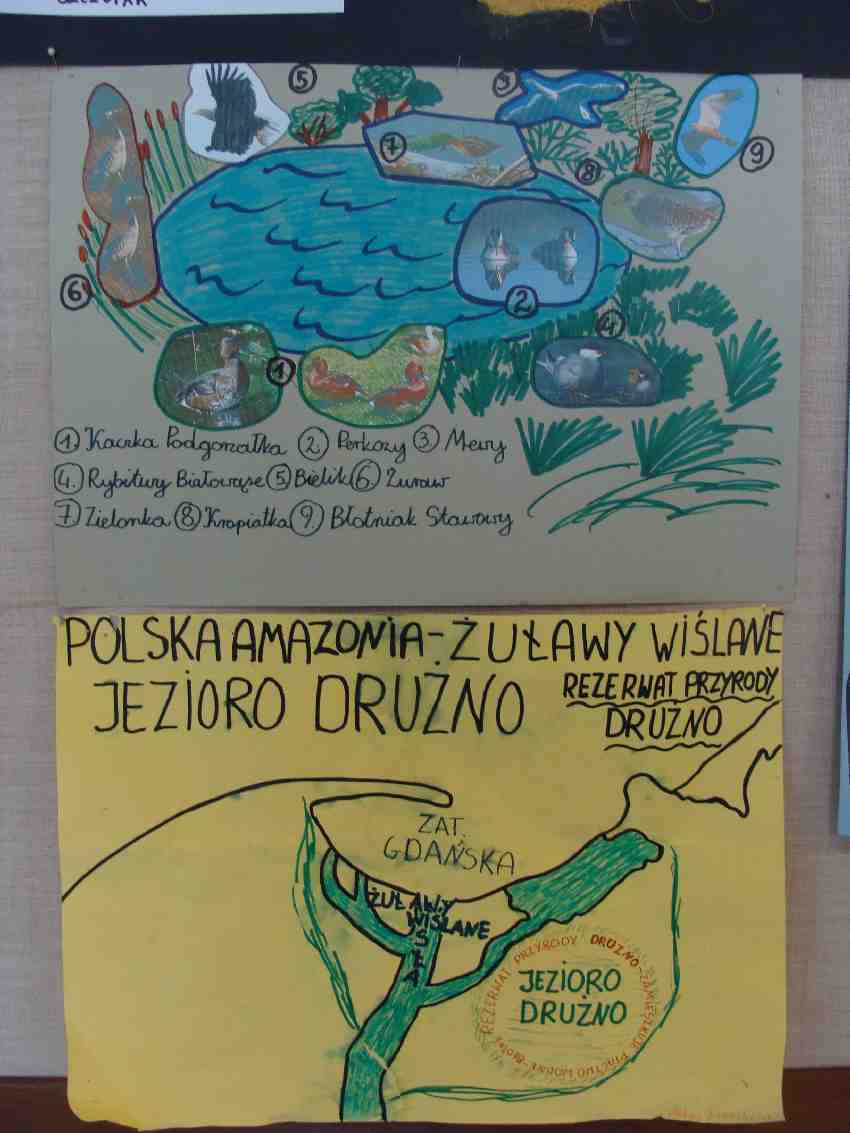 5
3
7
9
8
6
2
4
1
1. Kaczka Podgorzałka 2 Perkozy 3 Mewy
4. Rybitwy Białowąse 5 Bielik 6 Żuraw
7 Zielonka 8 Kropiatka 9. Błotniak Stawowy
POLSKA AMAZONIA - ŻUŁAWY WIŚLANE
JEZIORO DRUŻNO
REZERWAT PRZYRODY
DRUŻNO
ZAT.
GDAŃSKA
ŻUŁAWY
WIŚLANE
WISŁA
REZERWAT PRZYRODY DRUŻNO - ZAMIESZKUJE PTACTWO WODNE
JEZIORO
DRUŻNO